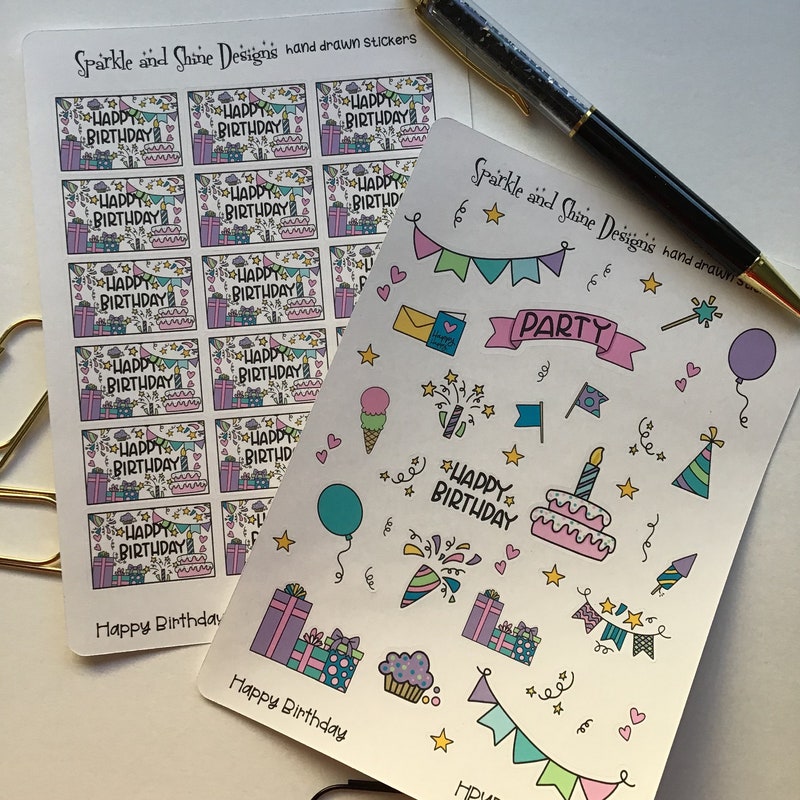 Sparkle and Shine Designs hand drawn stickers
HAPPY
BIRTHDAY
HAPPY
BIRTHDAY
HAPPY
BIRTHDAY
HAPPY
BIRTHDAY
HAPPY
BIRTHDAY
HAPPY
HAPPY
BIRTHDAY
HAPPY
BIRTHDAY
HAPPY
BIRTHDAY
HAPPY
BIRTHDAY
HAPPY
BIRTHDAY
HAPPY
HAPPY
BIRTHDAY
Happy Birthday
Sparkle and Shine Designs hand drawn
PARTY
HAPPY
BIRTHDAY
Happy Birthday